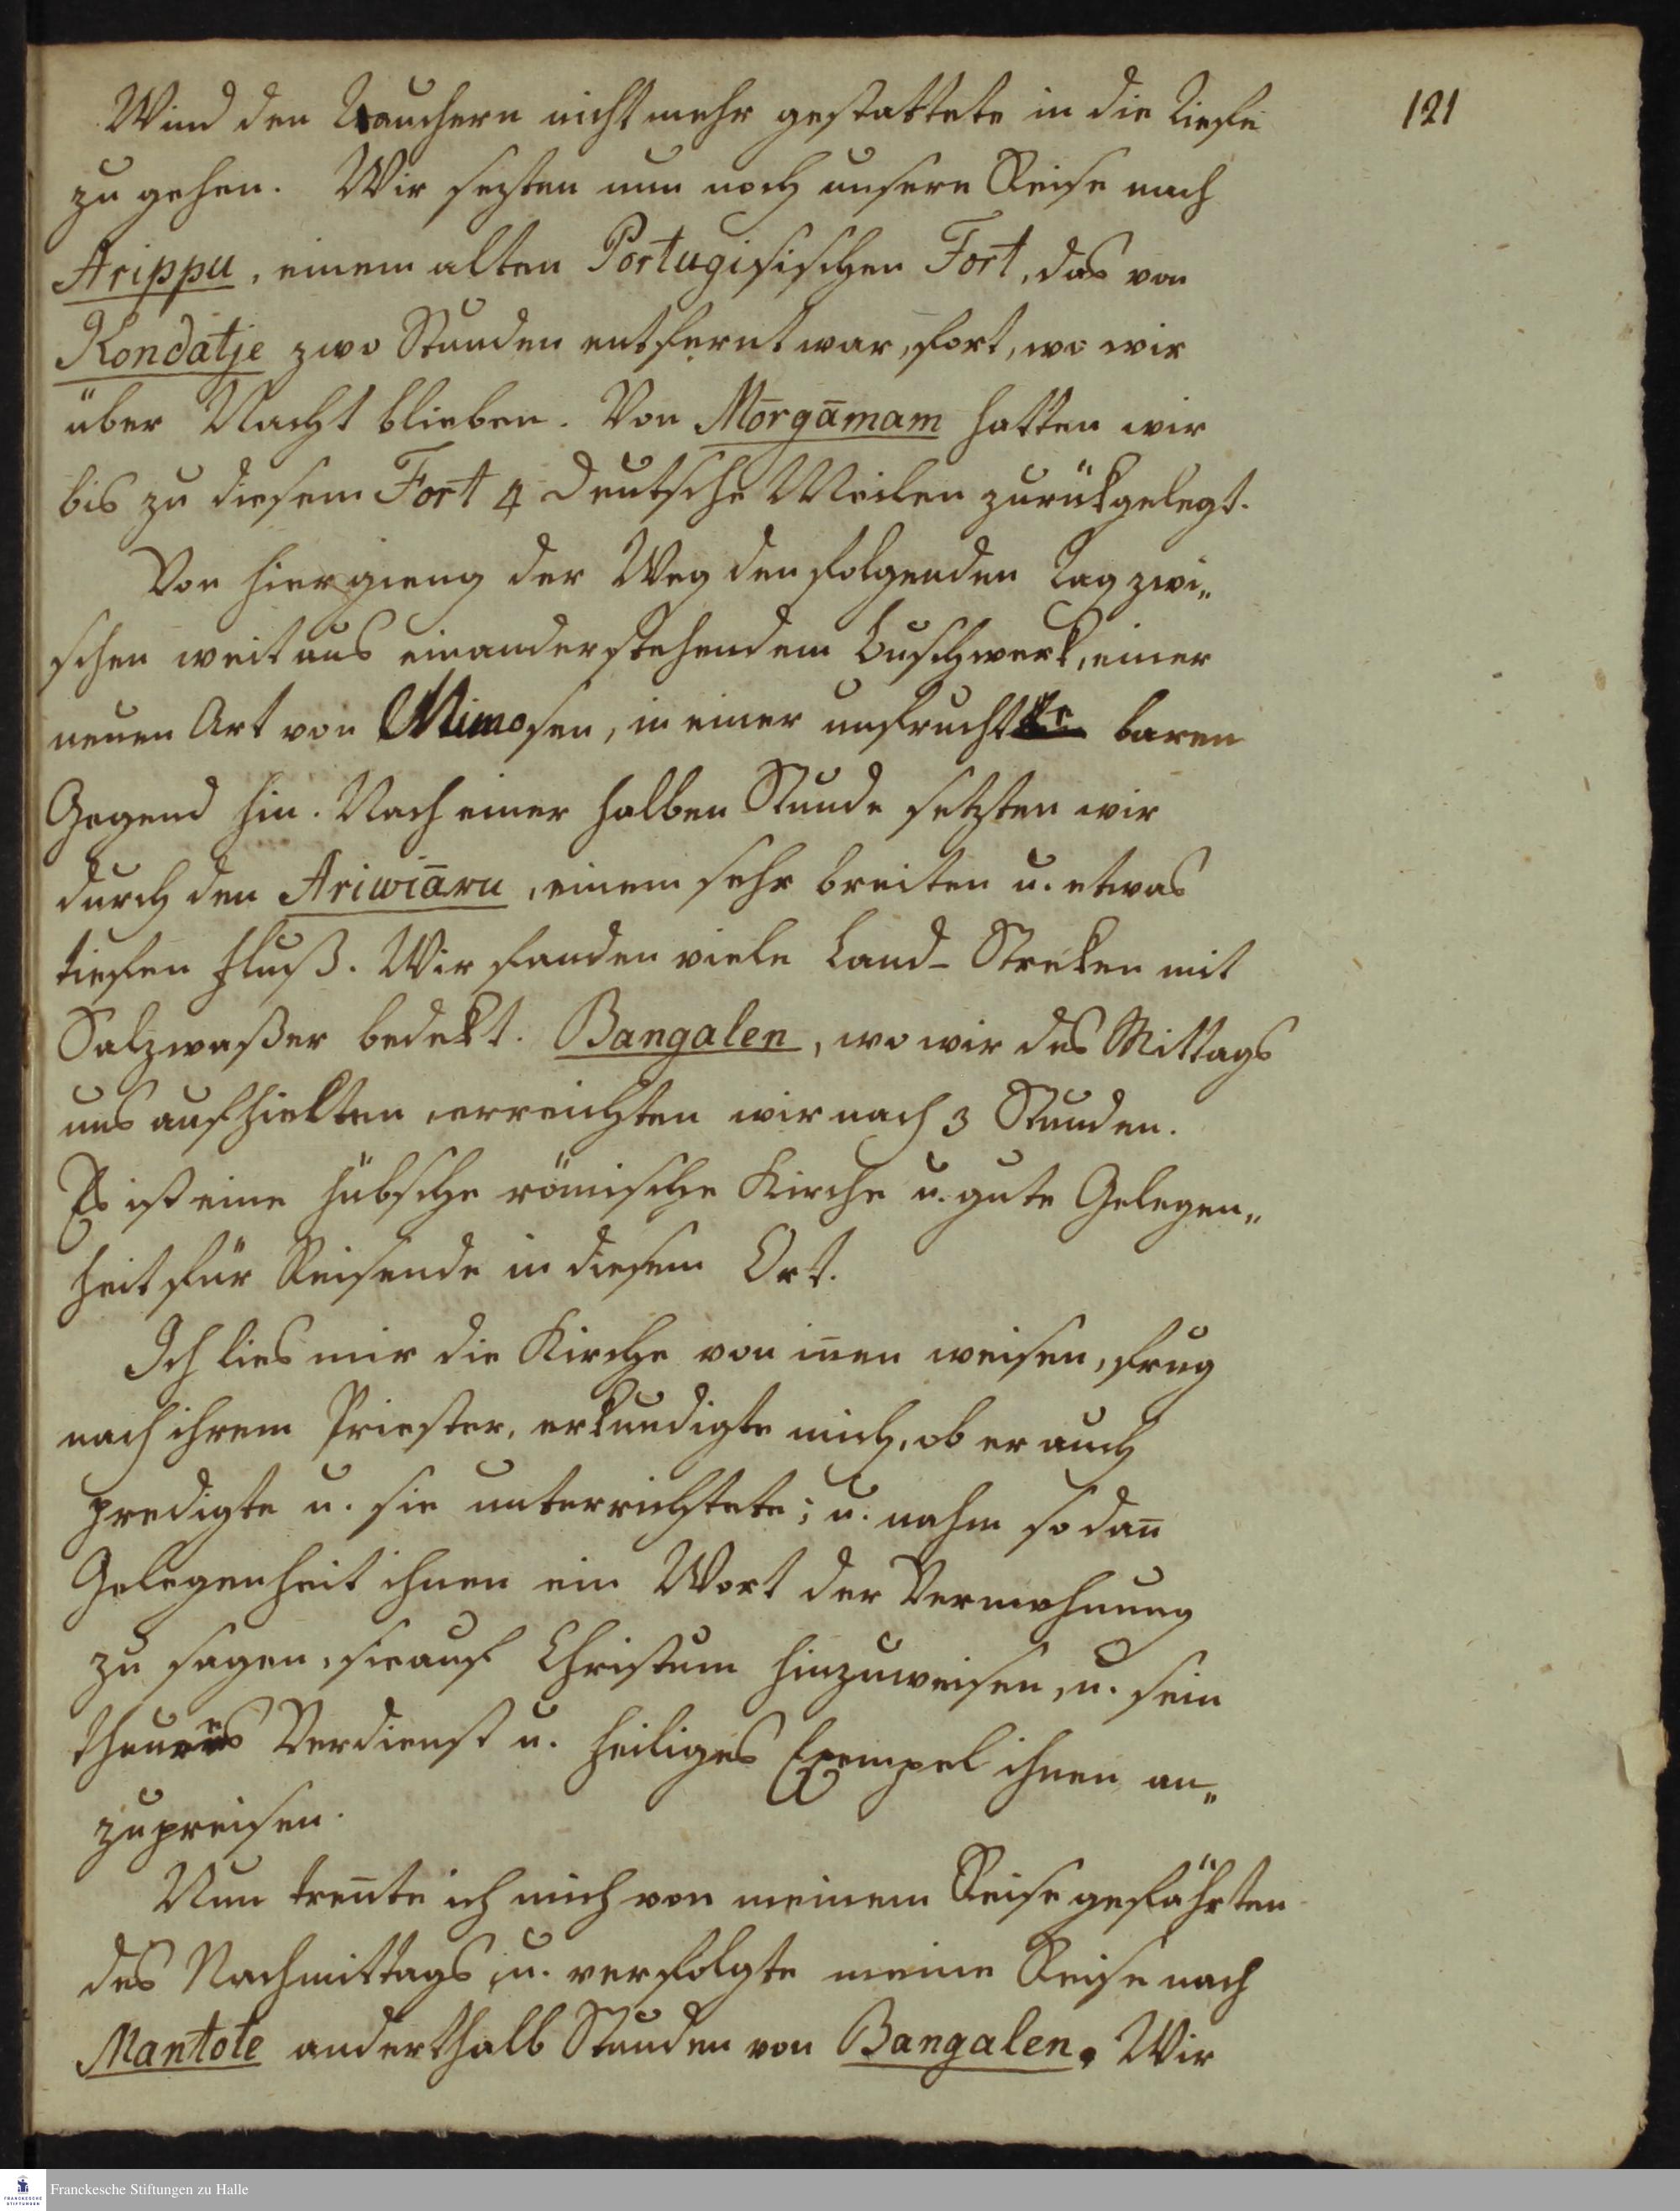 121
Wind den Tauchern nicht mehr gestattete in die Tiefe
zu gehen. Wir sezten nun noch unsere Reise nach
Arippu, einem alten Portugisischen Fort, das von
Kondatje zwo Stunden entfernt war, fort, wo wir
über Nacht blieben. Von Morgāmam hatten wir
bis zu diesem Fort 4 deutsche Meilen zurükgelegt.
Von hier gieng der Weg den folgenden Tag zwi„
schen weit aus einanderstehendem Buschwerk, einer
neuen Art von Mimosen, in einer unfrucht baren
Gegend hin. Nach einer halben Stunde setzten wir
durch den Ariwiāru, einem sehr breiten u. etwas
tiefen Fluß. Wir fanden viele Land-Streken mit
Salzwaßer bedekt. Bangalen, wo wir des Mittags
uns aufhielten, erreichten wir nach 3 Stunden.
Es ist eine hübsche römische Kirche u. gute Gelegen„
heit für Reisende in diesem Ort.
Ich lies mir die Kirche von inen weisen, frug
nach ihrem Priester, erkundigte mich, ob er auch
predigte u. sie unterrichtete; u. nahm so dan̄
Gelegenheit ihnen ein Wort der Vermahnung
zu sagen, sie auf Christum hinzuweisen, u. sein
theures Verdienst u. heiliges Exempel ihnen an„
zupreisen.
Nun tren̄te ich mich von meinem Reisegefährten
des Nachmittags, u. verfolgte meine Reise nach
Mantote anderthalb Stunden von Bangalen. Wir
Franckesche Stiftungen zu Halle